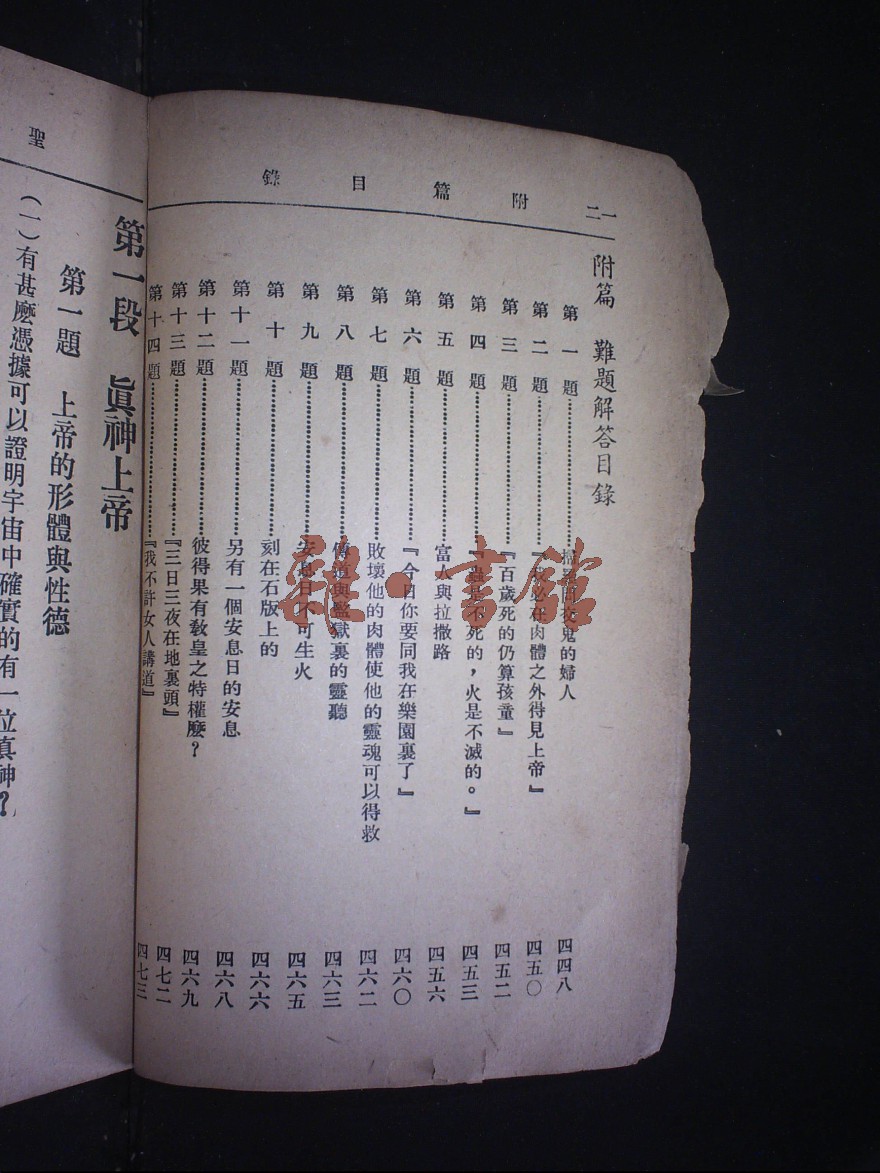 一二 附篇目錄
附篇 難題解答目錄
第一題…………掃羅問交鬼的婦人 四四八
第二題…………『我必在肉體之外得見上帝』 四五〇
第三題…………『百歲死的仍算孩童』 四五二
第四題…………『蟲是不死的，火是不滅的。』 四五三
第五題…………富人與拉撒路 四五六
第六題…………『今日你要同我在樂園裏了』 四六〇
第七題…………敗壞他的肉體使他的靈魂可以得救 四六二
第八題…………傳道與監獄裏的靈聽 四六三
第九題…………安息日不可生火 四六五
第十題…………刻在石版上的 四六六
第十一題…………另有一個安息日的安息 四六八
第十二題…………彼得果有教皇之特權麼？ 四六九
第十三題…………『三日三夜在地裏頭』 四七二
第十四題…………『我不許女人講道』 四七三
聖
第一段 眞神上帝
第一題 上帝的形體與性德
（一）有甚麼憑據可以證明宇宙中確實的有一位真神？
雜·書館